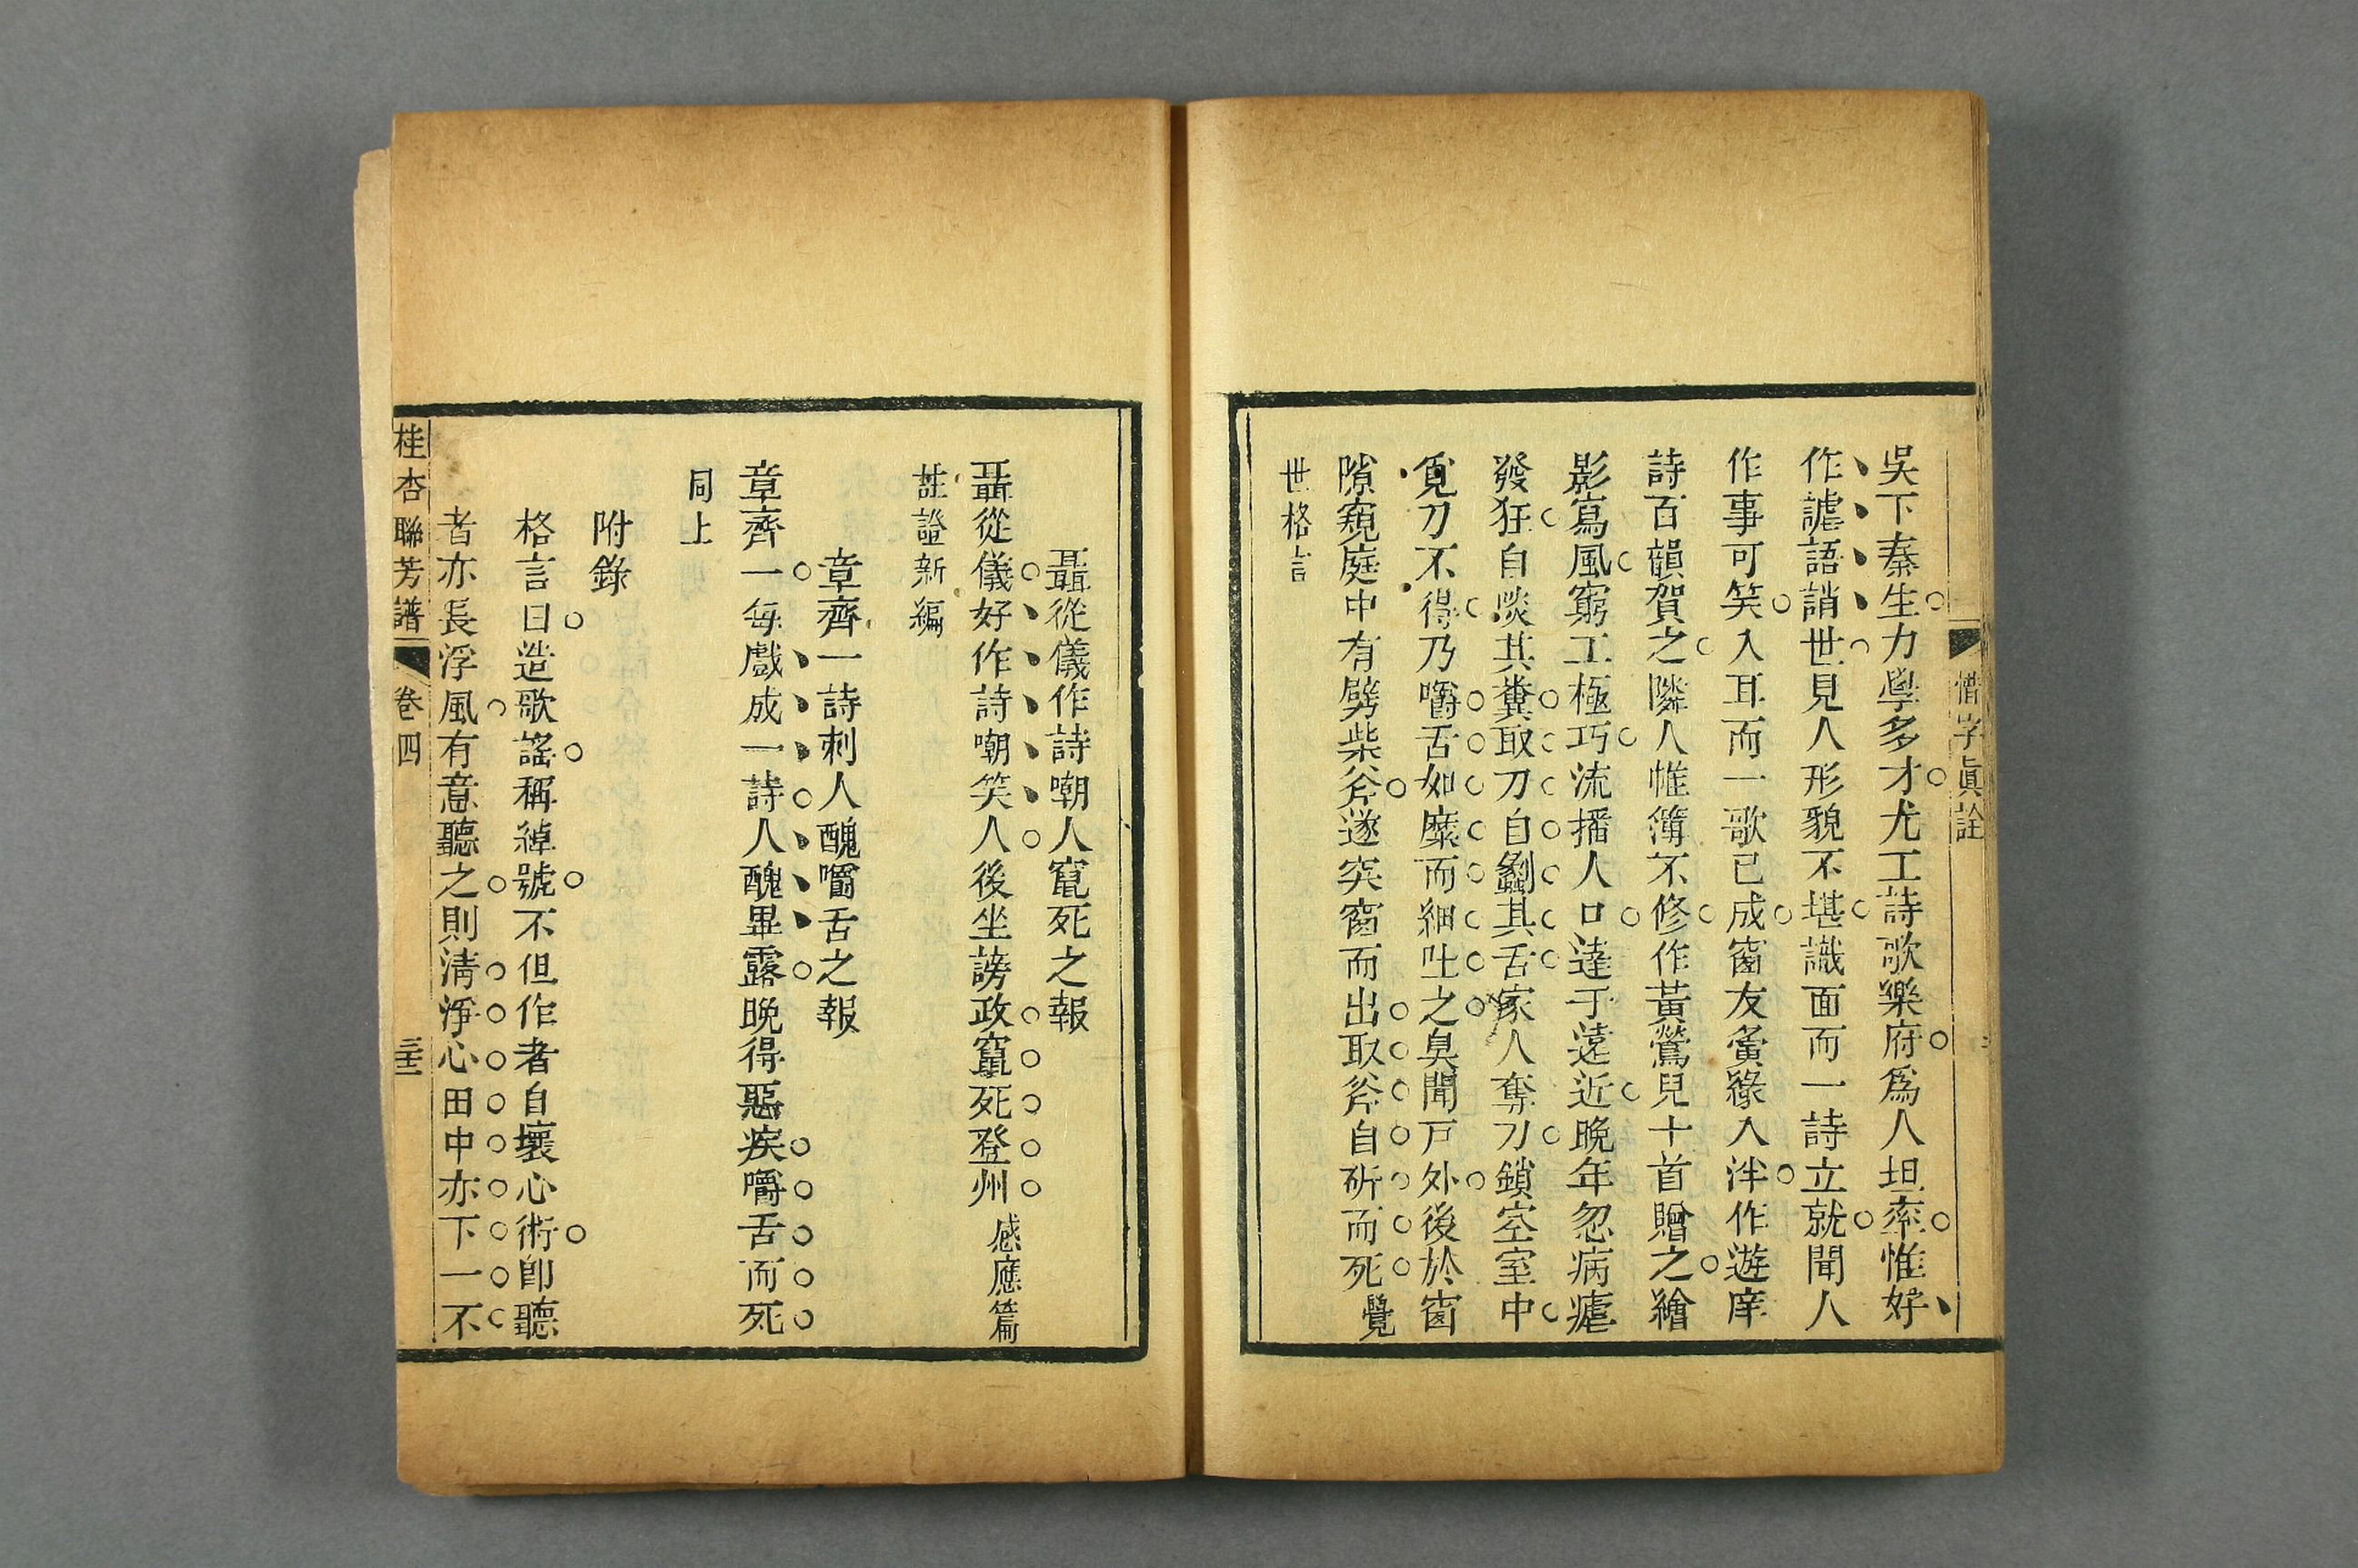 惜字眞詮
吳下秦生力學多才尤工詩歌樂府爲人坦率惟好
作謔語誚世見人形貌不堪識面而一詩立就聞人
作事可笑入耳而一歌已成窗友夤緣入泮作遊庠
詩百韻賀之隣人帷簿不修作黃鶯兒十首贈之繪
影寫風窮工極巧流播人口達于遠近晩年忽病瘧
發狂自啖其糞取刀自劙其舌家人奪刀鎖空室中
覓刀不得乃嚼舌如糜而細吐之臭聞戸外後於窗
隙窺庭中有劈柴斧遂突窗而出取斧自斫而死覺
世格言
聶從儀作詩嘲人竄死之報
聶從儀好作詩嘲笑人後坐謗政竄死登州感應篇
註證新編
章齊一詩刺人醜嚼舌之報
章齊一每戲成一詩人醜畢露晩得惡疾嚼舌而死
同上
附錄
格言曰造歌謠稱綽號不但作者自壞心術卽聽
者亦長浮風有意聽之則淸淨心田中亦下一不
桂杏聯芳譜 卷四